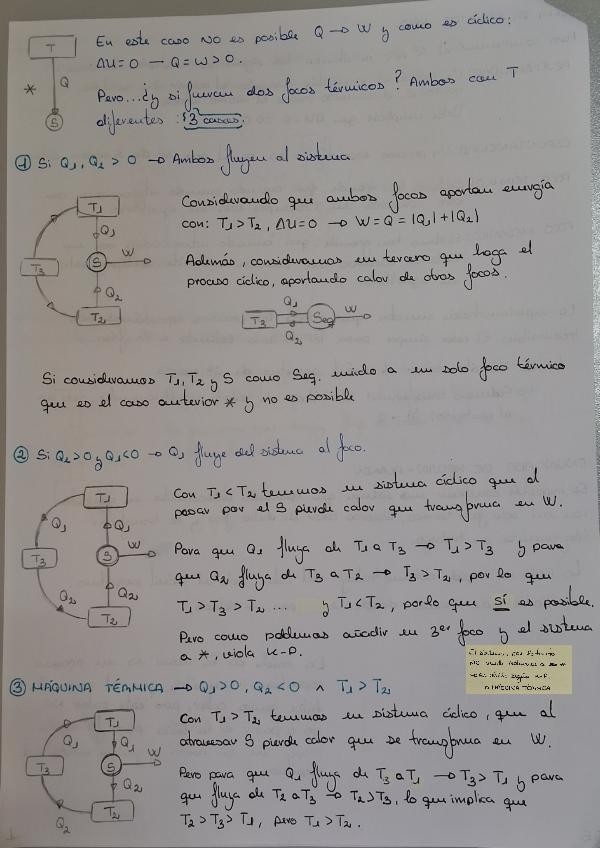 T
Q
*
S
En este caso NO es posible Q → W y como es cíclico:
ΔU=0 → Q=W>0.
Pero...¿y si fueran dos focos térmicos? Ambos con T
diferentes: 3 casos.
① Si Q₁, Q₂ > 0 → Ambos fluyen al sistema
T₁
Q₁
T₃
S
W
Q₂
T₂
Considerando que ambos focos aportan energía
con: T₁ > T₂, ΔU=0 → W=Q=|Q₁|+|Q₂|
Además, consideramos un tercero que haga el
proceso cíclico, aportando calor de otros focos.
Q₁
T₃
Seq
W
Q₂
Si consideramos T₁, T₂ y S como Seq. unido a un solo foco térmico
que es el caso anterior * y no es posible
② Si Q₂>0 y Q₁<0 → Q₁ fluye del sistema al foco.
T₁
Q₁
Q₁
T₃
S
W
Q₂
Q₂
T₂
Con T₁ < T₂ tenemos un sistema cíclico que al
pasar por el S pierde calor que transforma en W.
Para que Q₁ fluya de T₁ a T₃ → T₁ > T₃ y para
que Q₂ fluya de T₃ a T₂ → T₃ > T₂, por lo que
T₁ > T₃ > T₂ ... y T₁ < T₂, por lo que SÍ es posible.
Pero como podemos añadir un 3er foco y el sistema
a *, viola K-P.
MÁQUINA TÉRMICA
③ MÁQUINA TÉRMICA → Q₁>0, Q₂<0 ∧ T₁ > T₂
T₁
Q₁
Q₁
T₃
S
W
Q₂
Q₂
T₂
Con T₁ > T₂ tenemos un sistema cíclico, que al
atravesar S pierde calor que se transforma en W.
Pero para que Q₁ fluya de T₃ a T₁ → T₃ > T₁ y para
que fluya de T₂ a T₃ → T₂ > T₃, lo que implica que
T₂ > T₃ > T₁, pero T₁ > T₂.